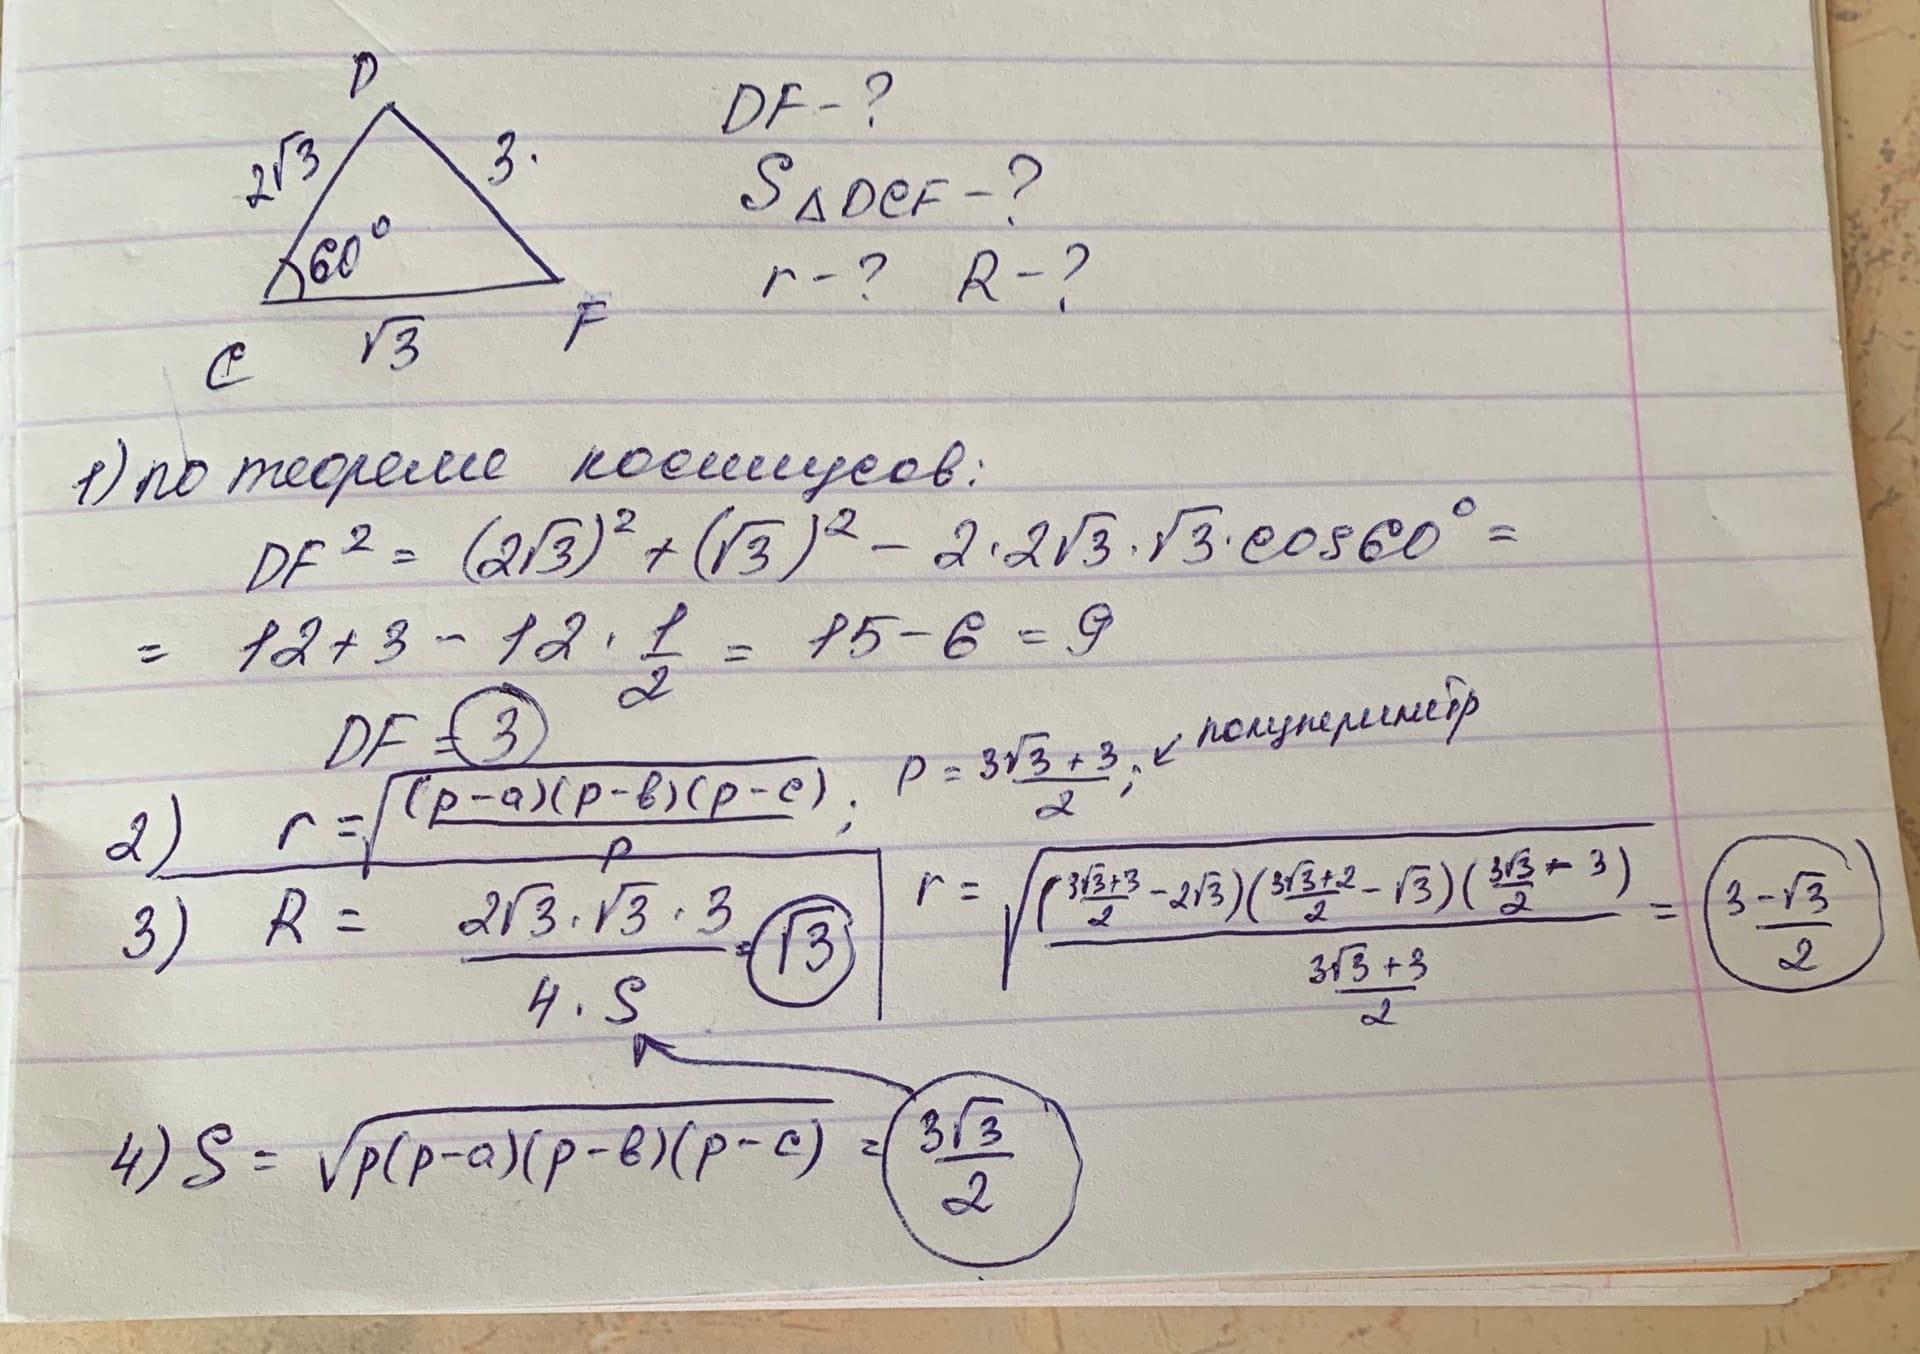 D
2√3
3.
60°
C
√3
F
DF - ?
S△DCF - ?
r - ? R - ?
1) по теореме косинусов:
DF² = (2√3)² + (√3)² - 2·2√3·√3·cos60° =
= 12+3 - 12 · 1/2 = 15 - 6 = 9
DF = 3
2) r = √((p-a)(p-b)(p-c)/p); p = (3√3+3)/2; ↙ полупериметр
r = √(((3√3+3)/2 - 2√3)((3√3+2)/2 - √3)(3√3/2 - 3)/((3√3+3)/2)) = (3-√3)/2
3) R = (2√3·√3·3)/(4·S) = √3
4) S = √(p(p-a)(p-b)(p-c)) = 3√3/2